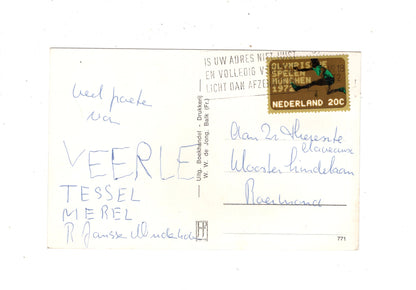 veel groeten
van
VEERLE
TESSEL
MEREL
R Janssen
Uitg. Boekhandel - Drukkerij
W. W. de Jong, Balk (Fr.)
IS UW ADRES NIET JUIST
EN VOLLEDIG
LICHT DAN AFZE
OLYMPISCHE
SPELEN
MÜNCHEN
1972
NEDERLAND 20C
Aan Zr Theresette
Klooster Lindelaan
Roermond
771